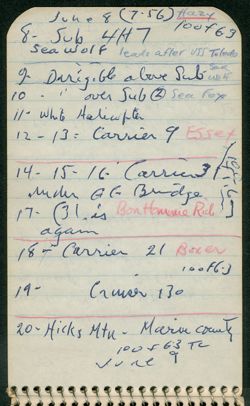 June 8 (7-56) Hazy
100 f63
8- Sub 4H7
Sea Wolf leads after USS
9- Dirigible above Sub Sea Wolf
10 - " over Sub (2) Sea Fox
11- White Helicopter
12 - 13 = Carrier 9 Essex
14 - 15 - 16 - Carrier 31
Under GG Bridge
17- (31 is Bon Homme Rich
again
18 - Carrier 21 Boxer
100 f6.3
19- Cruiser 130
20- Hicks Mtn - Marin County
100 f63
June 9